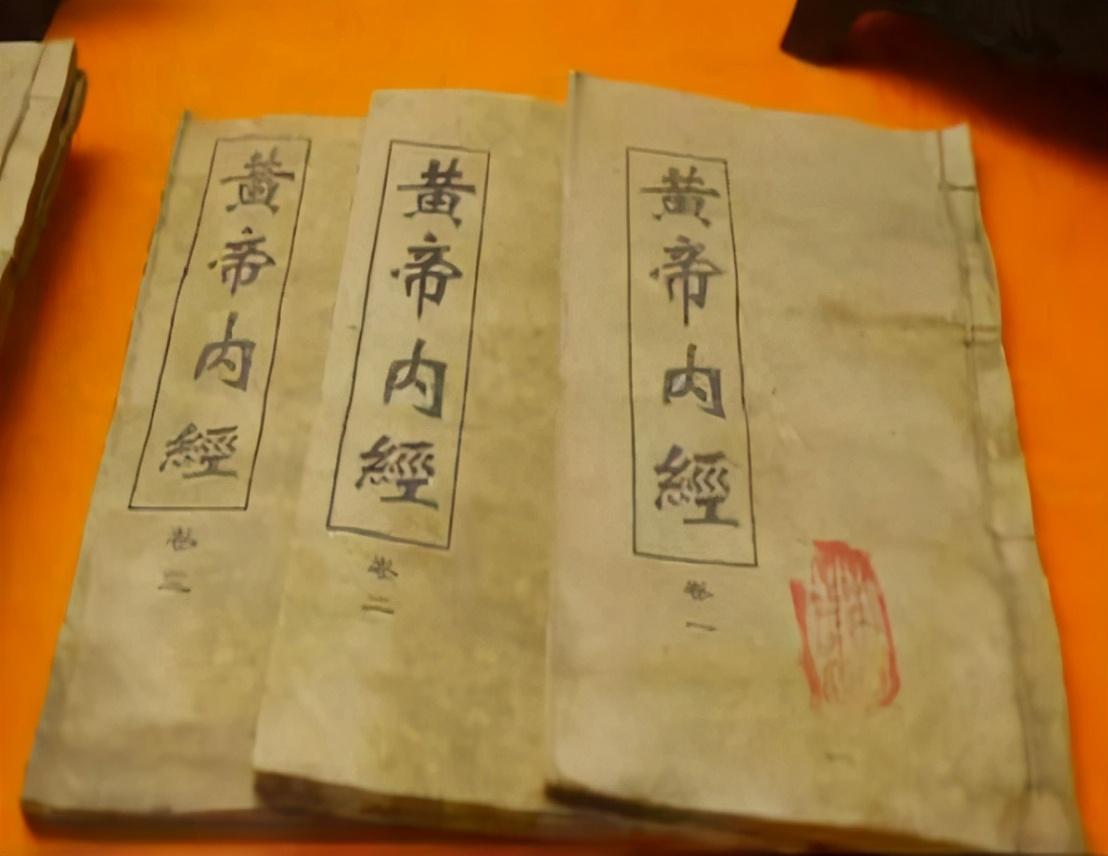 黃帝內經
卷一
黃帝內經
卷二
黃帝內經
卷三